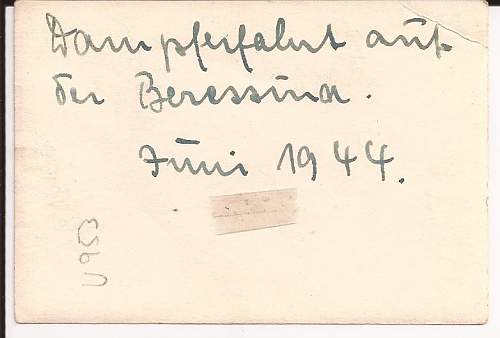 Dampferfahrt auf
der Beressina.
Juni 1944.
U953